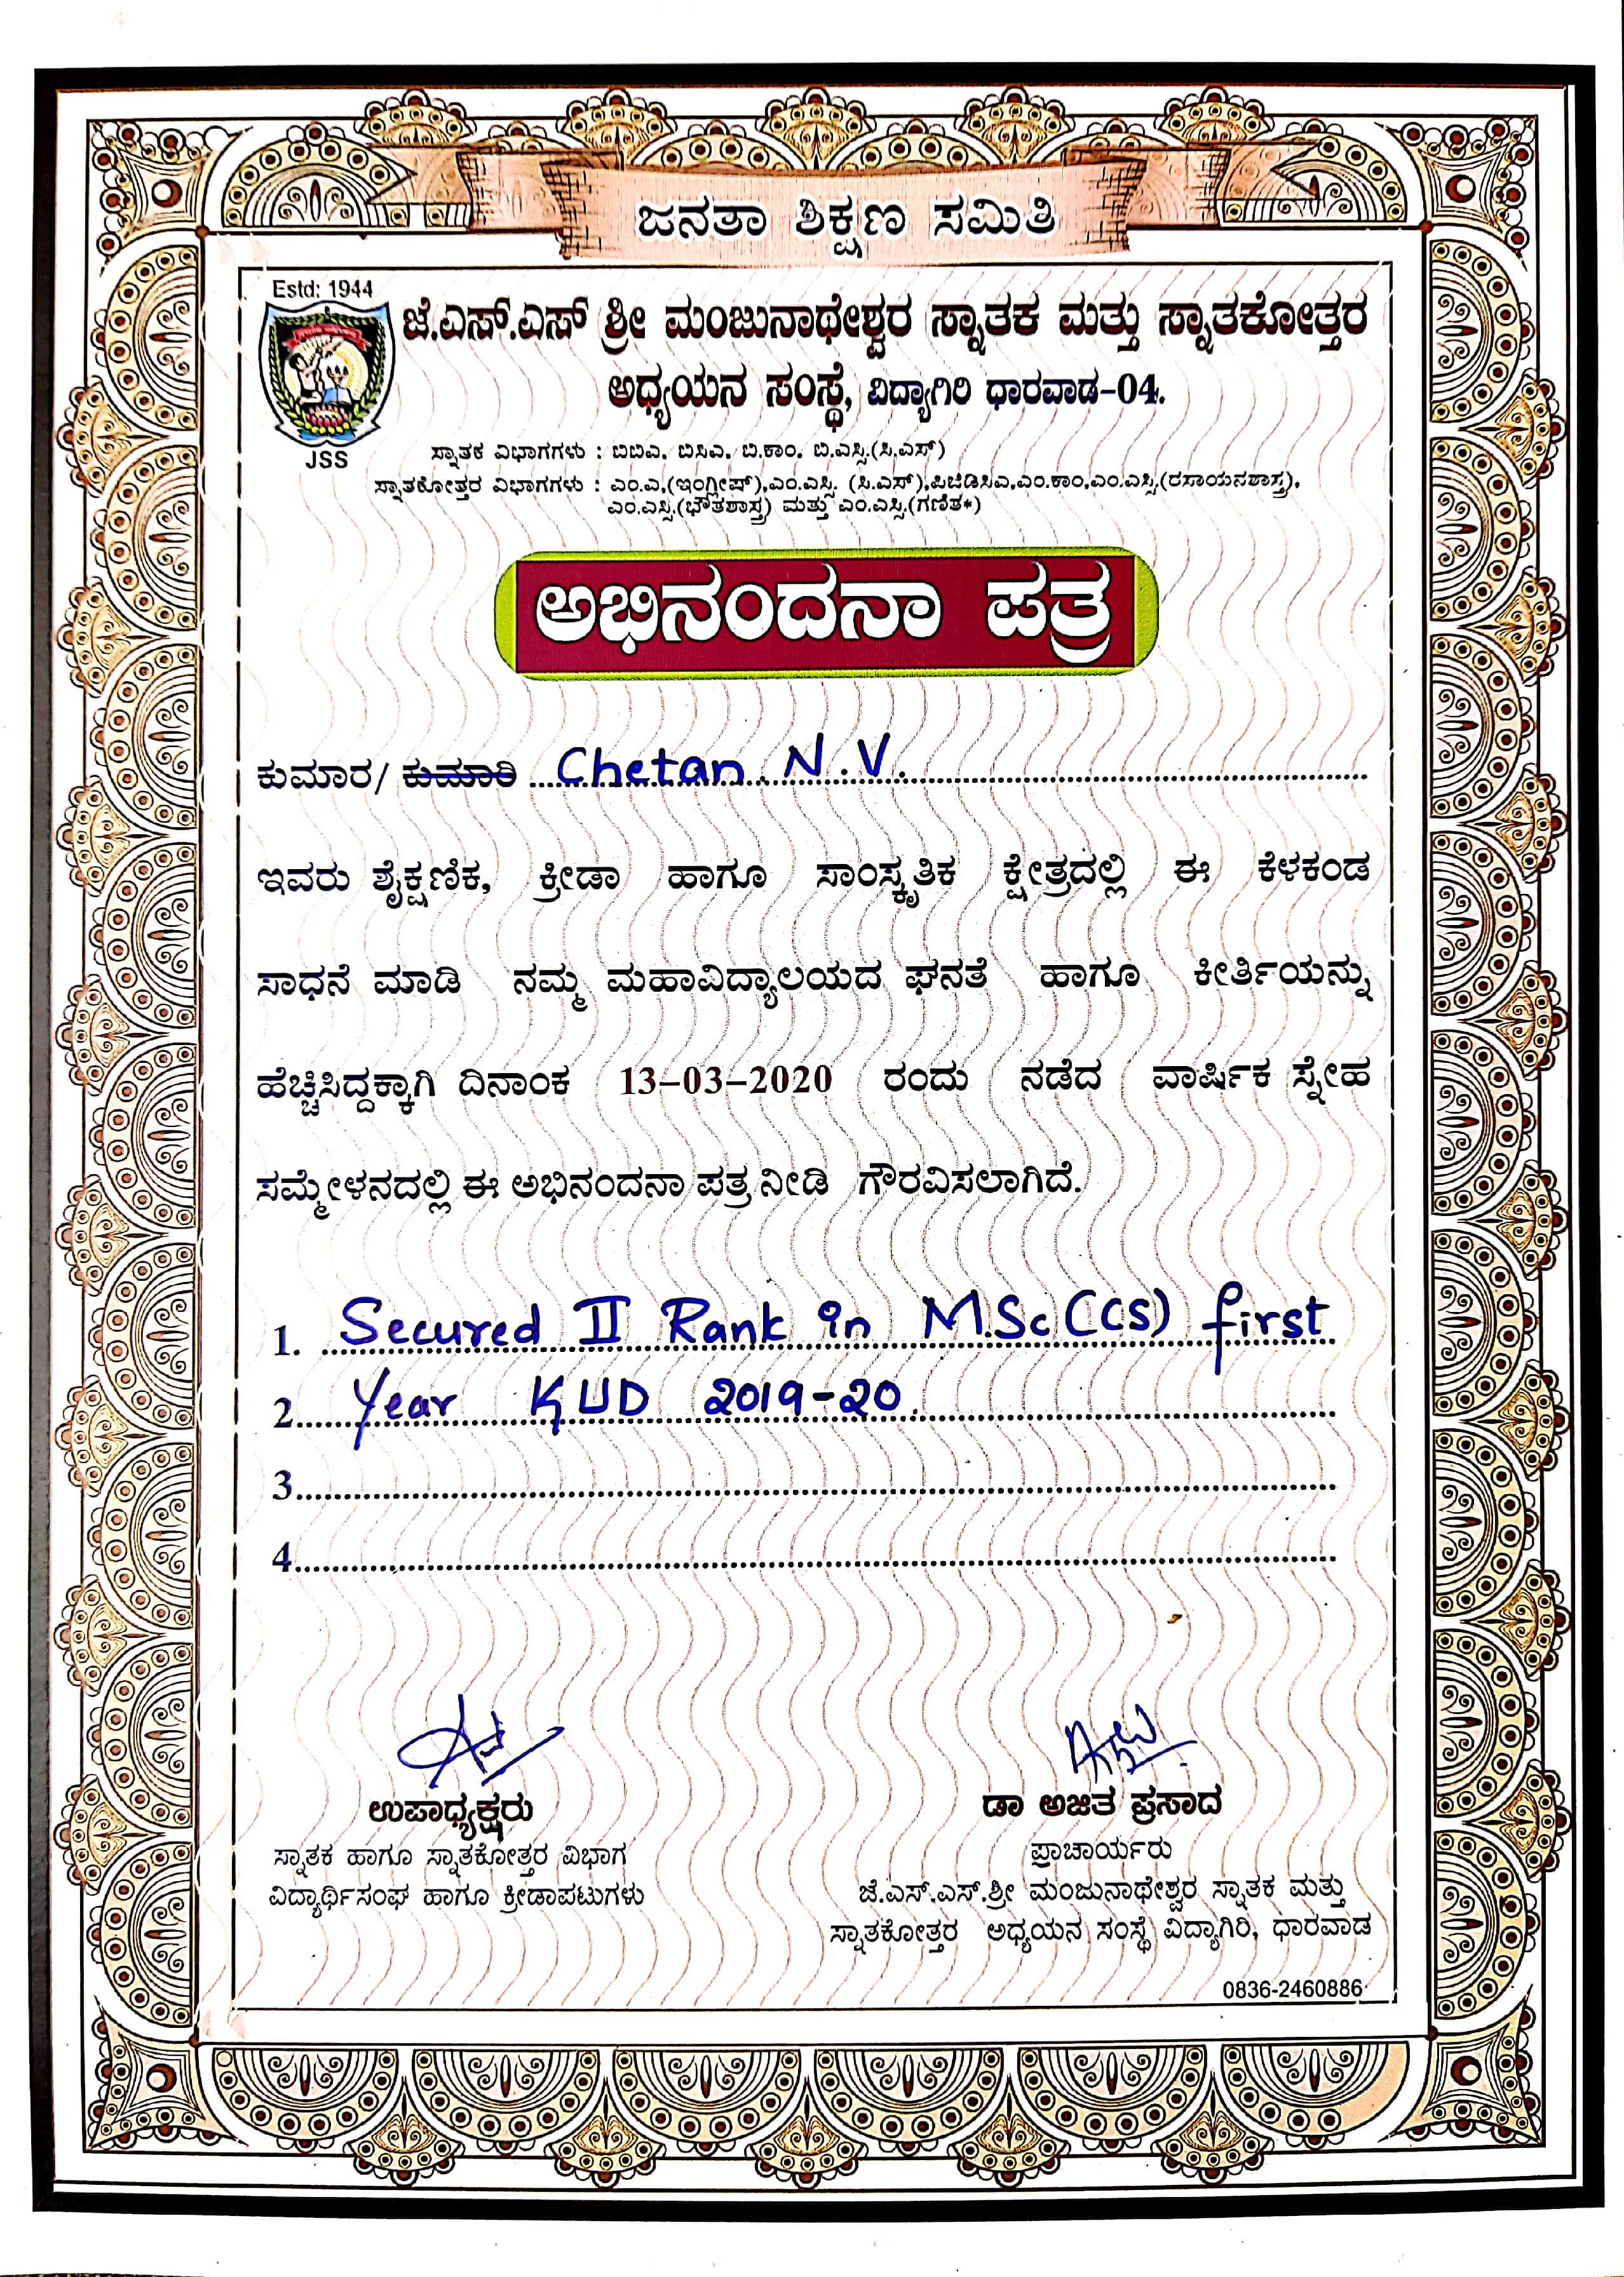 ಜನತಾ ಶಿಕ್ಷಣ ಸಮಿತಿ
Estd: 1944
JSS
ಜೆ.ಎಸ್.ಎಸ್ ಶ್ರೀ ಮಂಜುನಾಥೇಶ್ವರ ಸ್ನಾತಕ ಮತ್ತು ಸ್ನಾತಕೋತ್ತರ
ಅಧ್ಯಯನ ಸಂಸ್ಥೆ, ವಿದ್ಯಾಗಿರಿ ಧಾರವಾಡ-04.
ಸ್ನಾತಕ ವಿಭಾಗಗಳು : ಬಿಬಿಎ, ಬಿಸಿಎ, ಬಿ.ಕಾಂ, ಬಿ.ಎಸ್ಸಿ.(ಸಿ.ಎಸ್)
ಸ್ನಾತಕೋತ್ತರ ವಿಭಾಗಗಳು : ಎಂ.ಎ.(ಇಂಗ್ಲೀಷ್),ಎಂ.ಎಸ್ಸಿ. (ಸಿ.ಎಸ್),ಪಿಜಿಡಿಸಿಎ,ಎಂ.ಕಾಂ,ಎಂ.ಎಸ್ಸಿ.(ರಸಾಯನಶಾಸ್ತ್ರ),
ಎಂ.ಎಸ್ಸಿ.(ಭೌತಶಾಸ್ತ್ರ) ಮತ್ತು ಎಂ.ಎಸ್ಸಿ.(ಗಣಿತ*)
ಅಭಿನಂದನಾ ಪತ್ರ
ಕುಮಾರ/ ಕುಮಾರಿ Chetan N.V.
ಇವರು ಶೈಕ್ಷಣಿಕ, ಕ್ರೀಡಾ ಹಾಗೂ ಸಾಂಸ್ಕೃತಿಕ ಕ್ಷೇತ್ರದಲ್ಲಿ ಈ ಕೆಳಕಂಡ
ಸಾಧನೆ ಮಾಡಿ ನಮ್ಮ ಮಹಾವಿದ್ಯಾಲಯದ ಘನತೆ ಹಾಗೂ ಕೀರ್ತಿಯನ್ನು
ಹೆಚ್ಚಿಸಿದ್ದಕ್ಕಾಗಿ ದಿನಾಂಕ 13-03-2020 ರಂದು ನಡೆದ ವಾರ್ಷಿಕ ಸ್ನೇಹ
ಸಮ್ಮೇಳನದಲ್ಲಿ ಈ ಅಭಿನಂದನಾ ಪತ್ರ ನೀಡಿ ಗೌರವಿಸಲಾಗಿದೆ.
1. Secured II Rank in M.Sc (CS) first
2. Year KUD 2019-20.
3.
4.
ಉಪಾಧ್ಯಕ್ಷರು
ಸ್ನಾತಕ ಹಾಗೂ ಸ್ನಾತಕೋತ್ತರ ವಿಭಾಗ
ವಿದ್ಯಾರ್ಥಿಸಂಘ ಹಾಗೂ ಕ್ರೀಡಾಪಟುಗಳು
ಡಾ ಅಜಿತ ಪ್ರಸಾದ
ಪ್ರಾಚಾರ್ಯರು
ಜೆ.ಎಸ್.ಎಸ್.ಶ್ರೀ ಮಂಜುನಾಥೇಶ್ವರ ಸ್ನಾತಕ ಮತ್ತು
ಸ್ನಾತಕೋತ್ತರ ಅಧ್ಯಯನ ಸಂಸ್ಥೆ ವಿದ್ಯಾಗಿರಿ, ಧಾರವಾಡ
0836-2460886